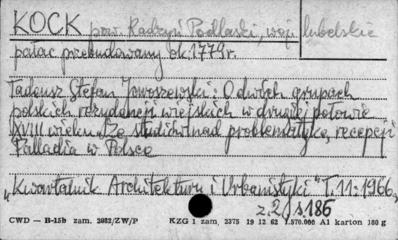 KOCK pow. Radzyń Podlaski, woj. lubelskie
pałac przebudowany ok. 1779 r.
Tadeusz Stefan Jaroszewski: O dwóch grupach
polskich rezydencji wiejskich w drugiej połowie
XVIII wieku. Ze studiów nad problematyką recepcji
Palladia w Polsce
„Kwartalnik Architektury i Urbanistyki" T. 11: 1966,
z. 2, s. 186
CWD — B-15b zam. 2082/ZW/P KZG 1 zam. 2375 19 12 62 1.570.000 A1 karton 180 g